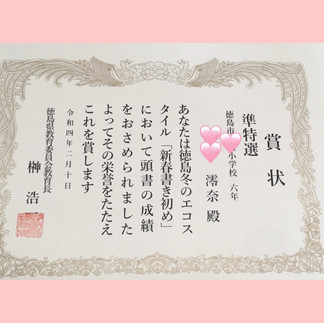 賞状
準特選
徳島市 小学校 六年
澪奈 殿
あなたは徳島冬のエコス
タイル「新春書き初め」
において頭書の成績
をおさめられました
よってその栄誉をたたえ
これを賞します
令和四年二月十日
徳島県教育委員会教育長
榊 浩